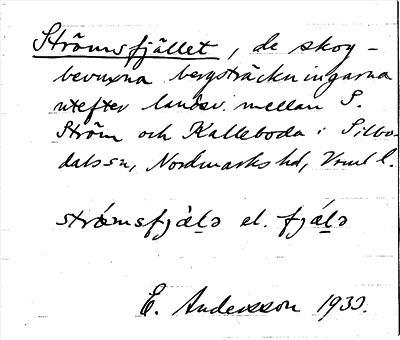 Strömsfjället, de skog-
bevuxna bergsträckningarna
utefter landsv. mellan S.
Ström och Kalleboda i Silbo-
dals sn, Nordmarks hd, Vrml l.
strömsfjäḷə el. fjäḷə
E. Andersson 1933.